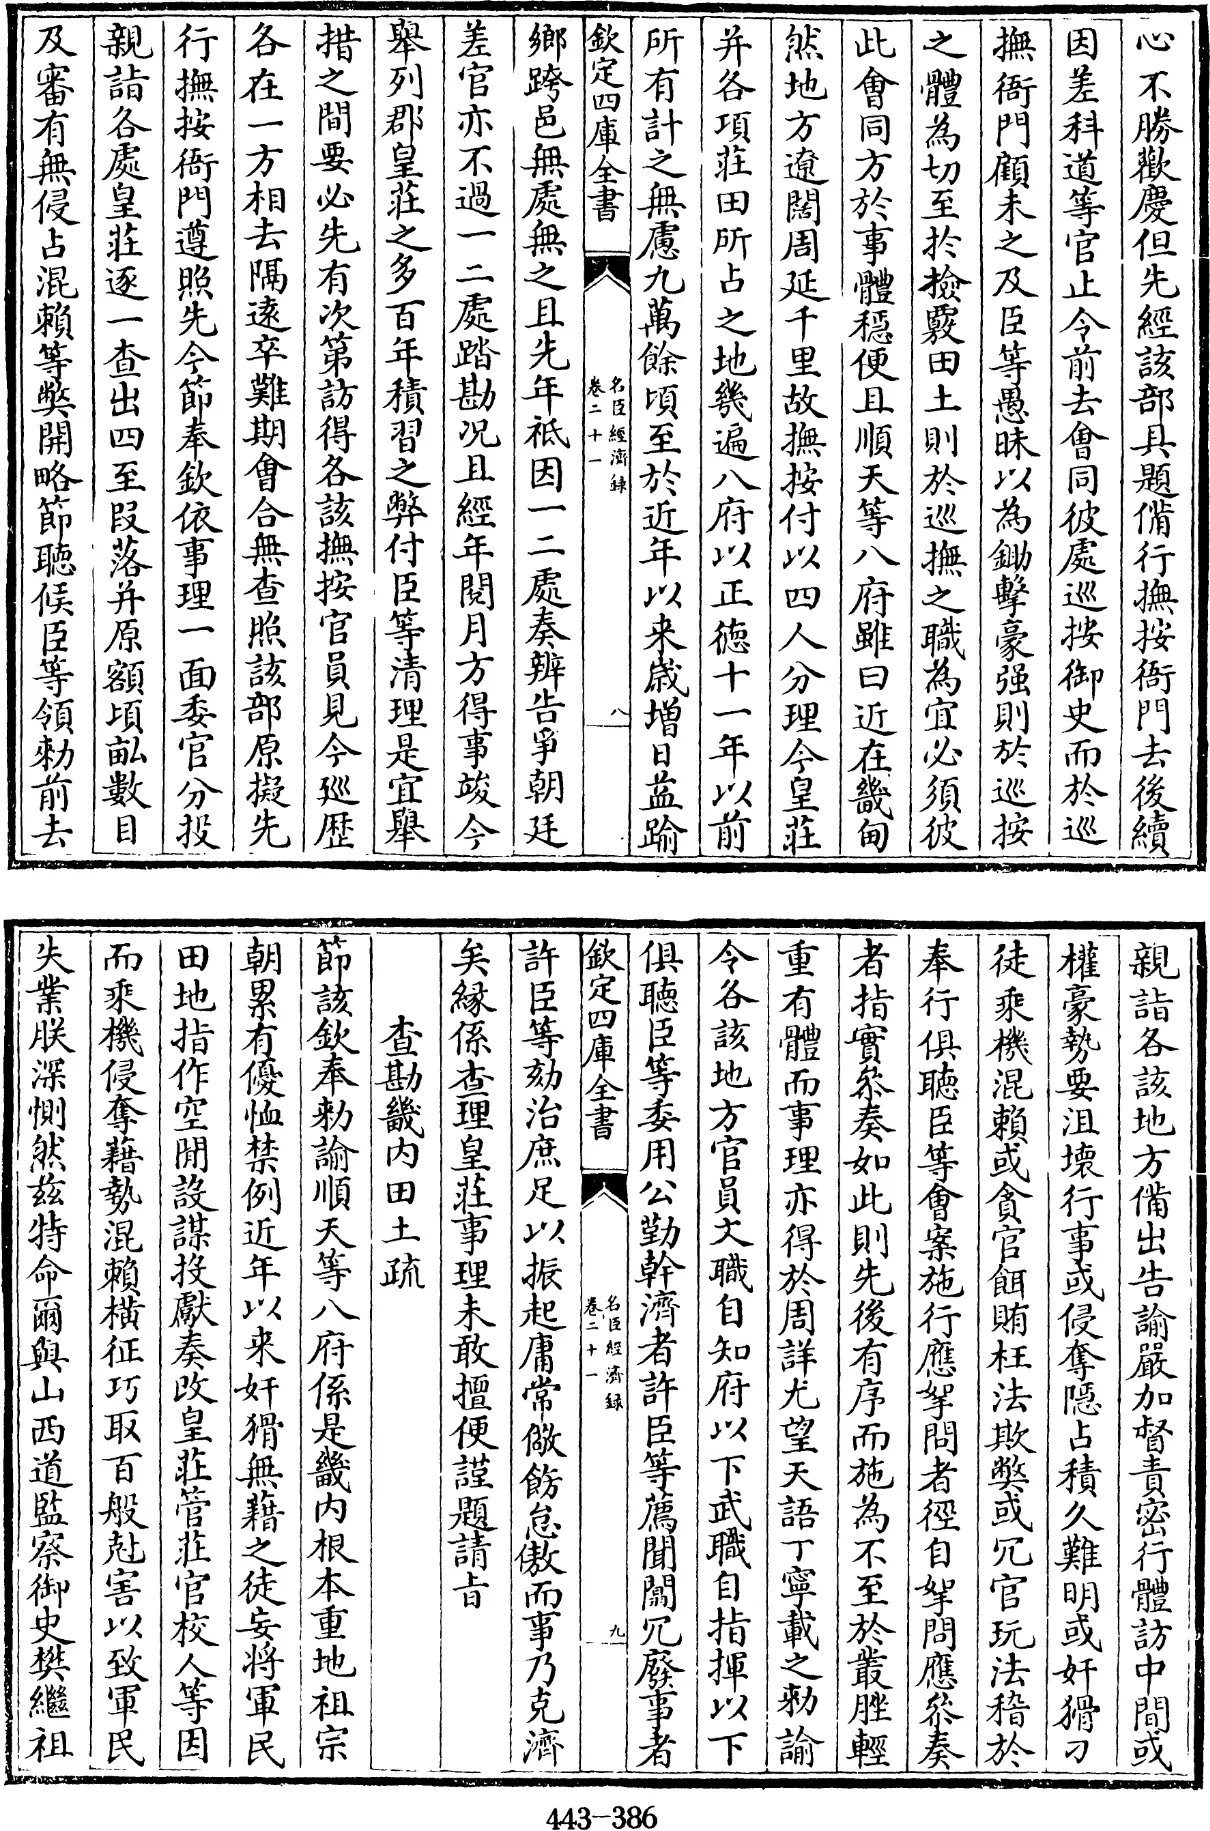 心不勝歡慶但先經該部具題備行撫按衙門去後續
因差科道等官止令前去會同彼處巡按御史而於巡
撫衙門顧未之及臣等愚昧以為鋤擊豪强則於巡按
之體為切至於檢覈田土則於巡撫之職為宜必須彼
此會同方於事體穩便且順天等八府雖曰近在畿甸
然地方遼闊周延千里故撫按付以四人分理今皇莊
并各項莊田所占之地幾遍八府以正德十一年以前
所有計之無慮九萬餘頃至於近年以来歲増日益踰
欽定四庫全書
名臣經濟錄
卷二十一
八
鄉跨邑無處無之且先年祗因一二處奏辨告爭朝廷
差官亦不過一二處踏勘况且經年閱月方得事竣今
舉列郡皇莊之多百年積習之弊付臣等清理是宜舉
措之間要必先有次第訪得各該撫按官員見今廵歷
各在一方相去隔逺卒難期會合無查照該部原擬先
行撫按衙門遵照先今節奉欽依事理一面委官分投
親詣各處皇莊逐一查出四至段落并原額頃畝數目
及審有無侵占混賴等弊開略節聽候臣等領勅前去
親詣各該地方備出告諭嚴加督責密行體訪中間或
權豪勢要沮壞行事或侵奪隱占積久難明或奸猾刁
徒乘機混賴或貪官餌賄枉法欺弊或冗官玩法稽於
奉行俱聽臣等會案施行應拏問者徑自拏問應叅奏
者指實叅奏如此則先後有序而施為不至於叢脞輕
重有體而事理亦得於周詳尤望天語丁寧載之勅諭
令各該地方官員文職自知府以下武職自指揮以下
俱聽臣等委用公勤幹濟者許臣等薦聞闒冗廢事者
欽定四庫全書
名臣經濟錄
卷二十一
九
許臣等劾治庶足以振起庸常儆飭怠傲而事乃克濟
矣縁係查理皇莊事理未敢擅便謹題請旨
查勘畿内田土疏
節該欽奉勅諭順天等八府係是畿内根本重地祖宗
朝累有優恤禁例近年以来奸猾無藉之徒妄將軍民
田地指作空閒設謀投獻奏改皇莊管莊官校人等因
而乘機侵奪藉勢混賴横征巧取百般尅害以致軍民
失業朕深惻然兹特命爾與山西道監察御史樊繼祖
443-386